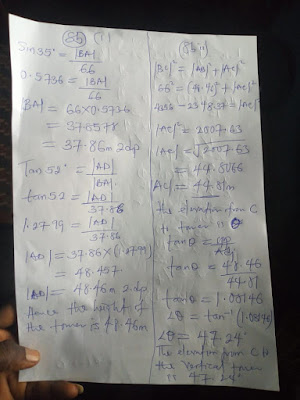 (85) (i)
Sin35° = |BA|
66
0.5736 = |BA|
66
|BA| = 66 x 0.5736
= 37.8578
= 37.86m 2dp
Tan 52° = |AD|
|BA|
tan 52 = |AD|
37.86
1.2799 = |AD|
37.86
|AD| = 37.86 x (1.2799)
= 48.457
|AD| = 48.46m 2dp
Hence the height of
the tower is 48.46m
|BC|² = |AB|² + |AC|²
|AC|² = 2007.63
|AC| = √2007.63
= 44.8066
|AC| = 44.81m
the elevation from C
to tower is θ
tanθ = opp
Adj
tanθ = 48.46
44.81
tanθ = 1.08146
∠θ = tan⁻¹ (1.08146)
∠θ = 47.24°
The elevation from C to
the vertical tower
is 47.24°